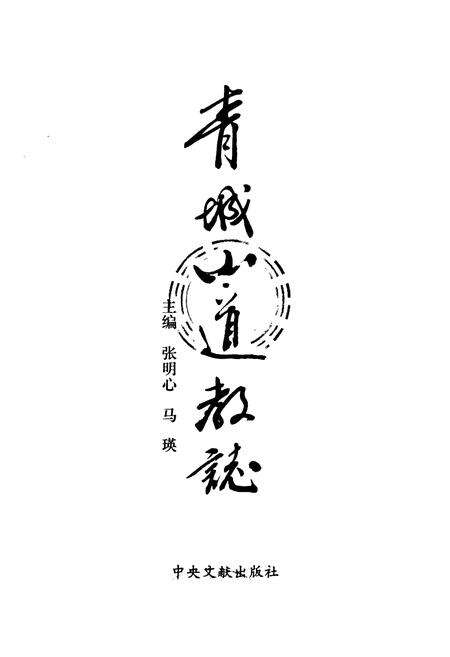 青城山道教誌
主编 张明心 马瑛
中央文献出版社